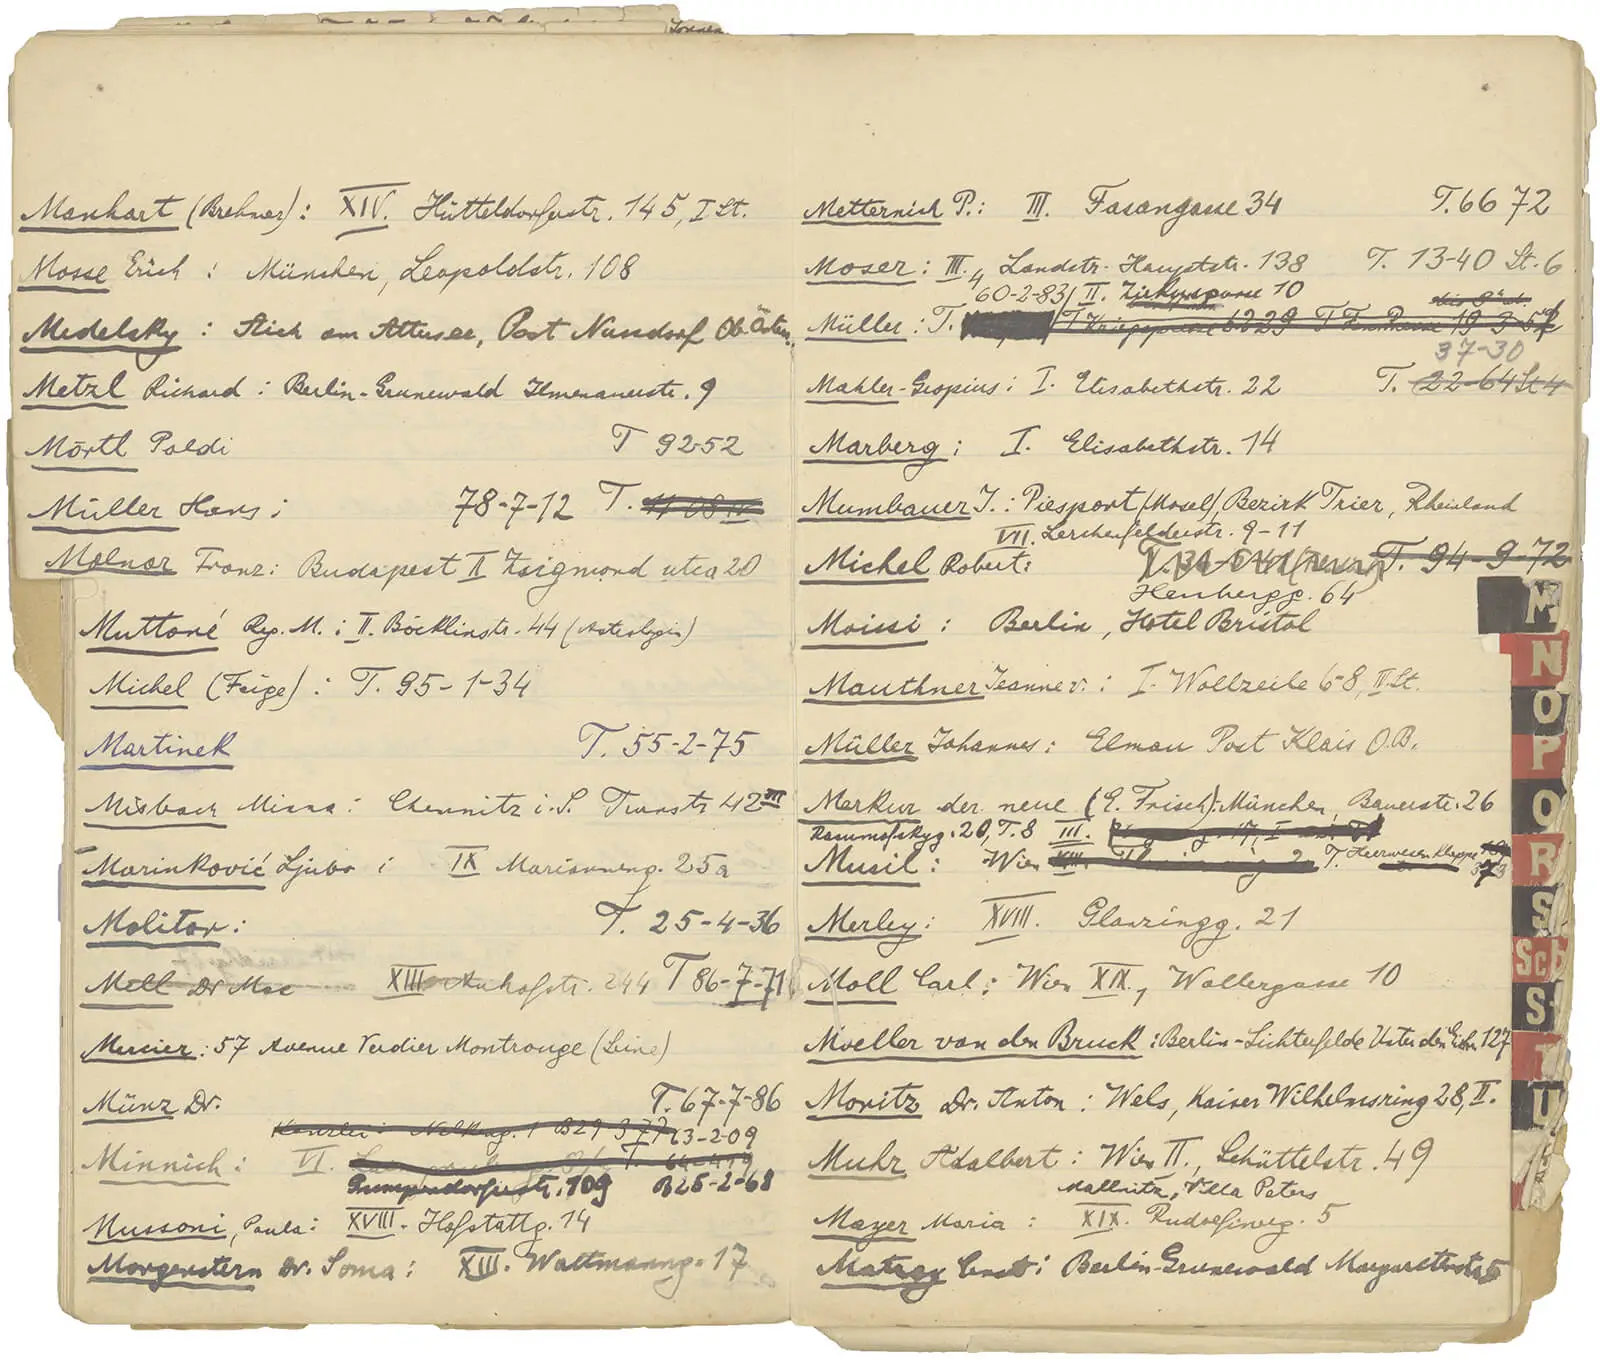 Manhart (Brehner): XIV. Hütteldorferstr. 145, I St.
Mosse Erich : München, Leopoldstr. 108
Medelsky : Aich am Attersee, Post Nussdorf Ob. Österr.
Metzl Richard : Berlin-Grunewald Ilmenauerstr. 9
Mörtl Poldi T 92-52
Müller Hans : 78-7-12 T.
Molnar Franz: Budapest II Zsigmond utca 20
Muttoné Reg. M. : II. Böcklinstr. 44 (Astrologin)
Michel (Feige) : T. 95-1-34
Martinek T. 55-2-75
Misbach Minna : Chemnitz i. S. Turnstr. 42 III
Marinković Ljubo : IX Marianneng. 25a
Molitor : T. 25-4-36
Mell Dr Max XIII Auhofstr. 244 T 86-7-71
Mercier : 57 Avenue Verdier Montrouge (Seine)
Münz Dr. T. 67-7-86
Kanzlei: Nelkeng. 1 B29 3 77 63-2-09
Minnich : VI.
Gumpendorferstr. 109 B25-2-68
Mussoni, Paula : XVIII. Hofstattg. 14
Morgenstern Dr. Soma : XIII. Wattmanng. 17
Metternich P. : III. Fasangasse 34 T. 66 72
Moser : III, Landstr. Hauptstr. 138 T. 13-40 St. 6
60-2-83 / II. Zirkusgasse 10
Müller : T. T Kriegspresse 6229 T 19 3 57
37-30
Mahler-Gropius : I. Elisabethstr. 22 T. 22-64 St 4
Marberg : I. Elisabethstr. 14
Mumbauer J. : Piesport (Mosel), Bezirk Trier, Rheinland
VII. Lerchenfelderstr. 9-11
Michel Robert : T. 94-9-72
64
Moissi : Berlin, Hotel Bristol
Mauthner Jeanne v. : I. Wollzeile 6-8, III St.
Müller Johannes : Elmau Post Klais O.B.
Merkur der neue (E. Frisch) : München, Bauerstr. 26
Rasumofskyg. 20, T. 8 III.
Musil : Wien T. Heerwesen Klappe 373
Merley : XVIII. Glanzingg. 21
Moll Carl : Wien XIX., Wollergasse 10
Moeller van den Bruck : Berlin-Lichterfelde Unter den Eichen 127
Moritz Dr. Anton : Wels, Kaiser Wilhelmsring 28, II.
Muhr Adalbert : Wien II., Schüttelstr. 49
Mallnitz, Villa Peters
Mayer Maria : XIX. Rudolfinerg. 5
Matray Ernst : Berlin-Grunewald
M
N
O
P
Q
R
S
Sch
St
T
U